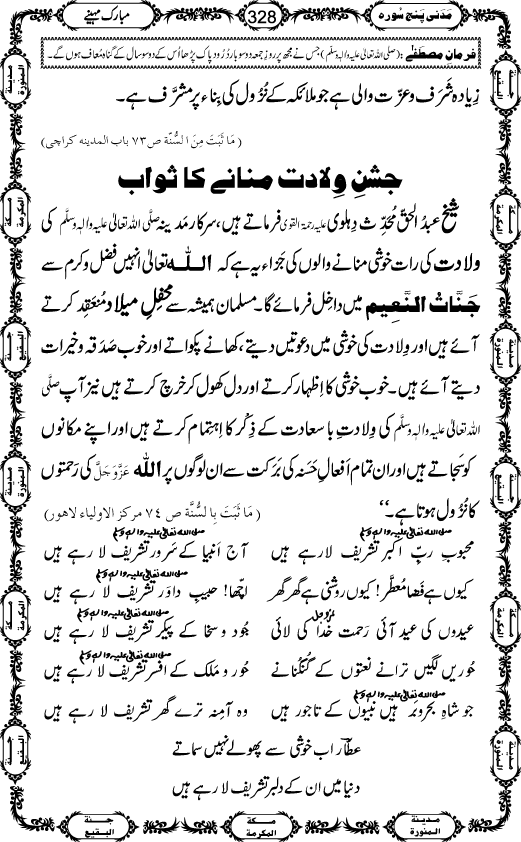 مَدَنی پنج سُورہ
328
مبارک مہینے
فرمانِ مصطفٰے : (صلی اللہ تعالیٰ علیہ والہٖ وسلّم) جس نے مجھ پر روزِ جمعہ دو سو بار دُرُودِ پاک پڑھا اُس کے دو سو سال کے گناہ مُعاف ہوں گے۔
زِیادہ شَرَف و عزّت والی ہے جو ملائکہ کے نُزُول کی بِناء پر مشرَّف ہے۔
( مَا ثَبَتَ مِنَ السُّنَّة ص۷۳ باب المدینہ کراچی)
جشنِ وِلادت منانے کا ثواب
شیخ عبدُ الحق مُحَدِّث دِہلوی علیہ رحمۃ القوی فرماتے ہیں، سرکارِ مدینہ صلَّی اللہ تعالیٰ علیہ والہٖ وسلَّم کی
وِلادت کی رات خوشی منانے والوں کی جَزاء یہ ہے کہ اللہ تعالیٰ انہیں فضل و کرم سے
جَنّاتُ النَّعِیم میں داخل فرمائے گا۔ مسلمان ہمیشہ سے محفلِ میلاد مُنعَقِد کرتے
آئے ہیں اور وِلادت کی خوشی میں دعوتیں دیتے، کھانے پکواتے اور خوب صَدَقہ و خیرات
دیتے آئے ہیں۔ خوب خوشی کا اِظہار کرتے اور دل کھول کر خرچ کرتے ہیں نیز آپ صلَّی
اللہ تعالیٰ علیہ والہٖ وسلَّم کی وِلادتِ با سعادت کے ذِکْر کا اِہتِمام کرتے ہیں اور اپنے مکانوں
کو سجاتے ہیں اور ان تمام اَفعالِ حَسَنہ کی بَرَکت سے ان لوگوں پر اللہ عَزَّوَجَلَّ کی رَحمتوں
کا نُزُول ہوتا ہے۔‘‘ ( مَا ثَبَتَ بِالسُّنَّة ص ۷۴ مرکز الاولیاء لاہور)
محبوبِ ربِّ اکبر صلی اللہ تعالیٰ علیہ والہٖ وسلم تشریف لا رہے ہیں آج اَنبیا کے سَرور صلی اللہ تعالیٰ علیہ والہٖ وسلم تشریف لا رہے ہیں
کیوں ہے فَضا مُعطَّر! کیوں روشنی ہے گھر گھر اچّھا! حبیبِ داوَر صلی اللہ تعالیٰ علیہ والہٖ وسلم تشریف لا رہے ہیں
عیدوں کی عید آئی رَحمت خُدا عزوجل کی لائی جُود و سخا کے پیکر صلی اللہ تعالیٰ علیہ والہٖ وسلم تشریف لا رہے ہیں
حُوریں لگیں ترانے نعتوں کے گُنگُنانے حُور و مَلَک کے افسر صلی اللہ تعالیٰ علیہ والہٖ وسلم تشریف لا رہے ہیں
جو شاہِ بحر و بَر صلی اللہ تعالیٰ علیہ والہٖ وسلم ہیں نبیوں کے تاجور ہیں وہ آمِنہ ترے گھر تشریف لا رہے ہیں
عطّارؔ اب خوشی سے پھولے نہیں سماتے
دنیا میں ان کے دلبر تشریف لا رہے ہیں
مدینۃ المنورۃ
جنۃ البقیع
مکۃ المکرمۃ
مدینۃ المنورۃ
جنۃ البقیع
مکۃ المکرمۃ
مدینۃ المنورۃ
جنۃ البقیع
مدینۃ المنورۃ
مکۃ المکرمۃ
جنۃ البقیع
مدینۃ المنورۃ
مکۃ المکرمۃ
جنۃ البقیع
مدینۃ المنورۃ
مکۃ المکرمۃ
جنۃ البقیع